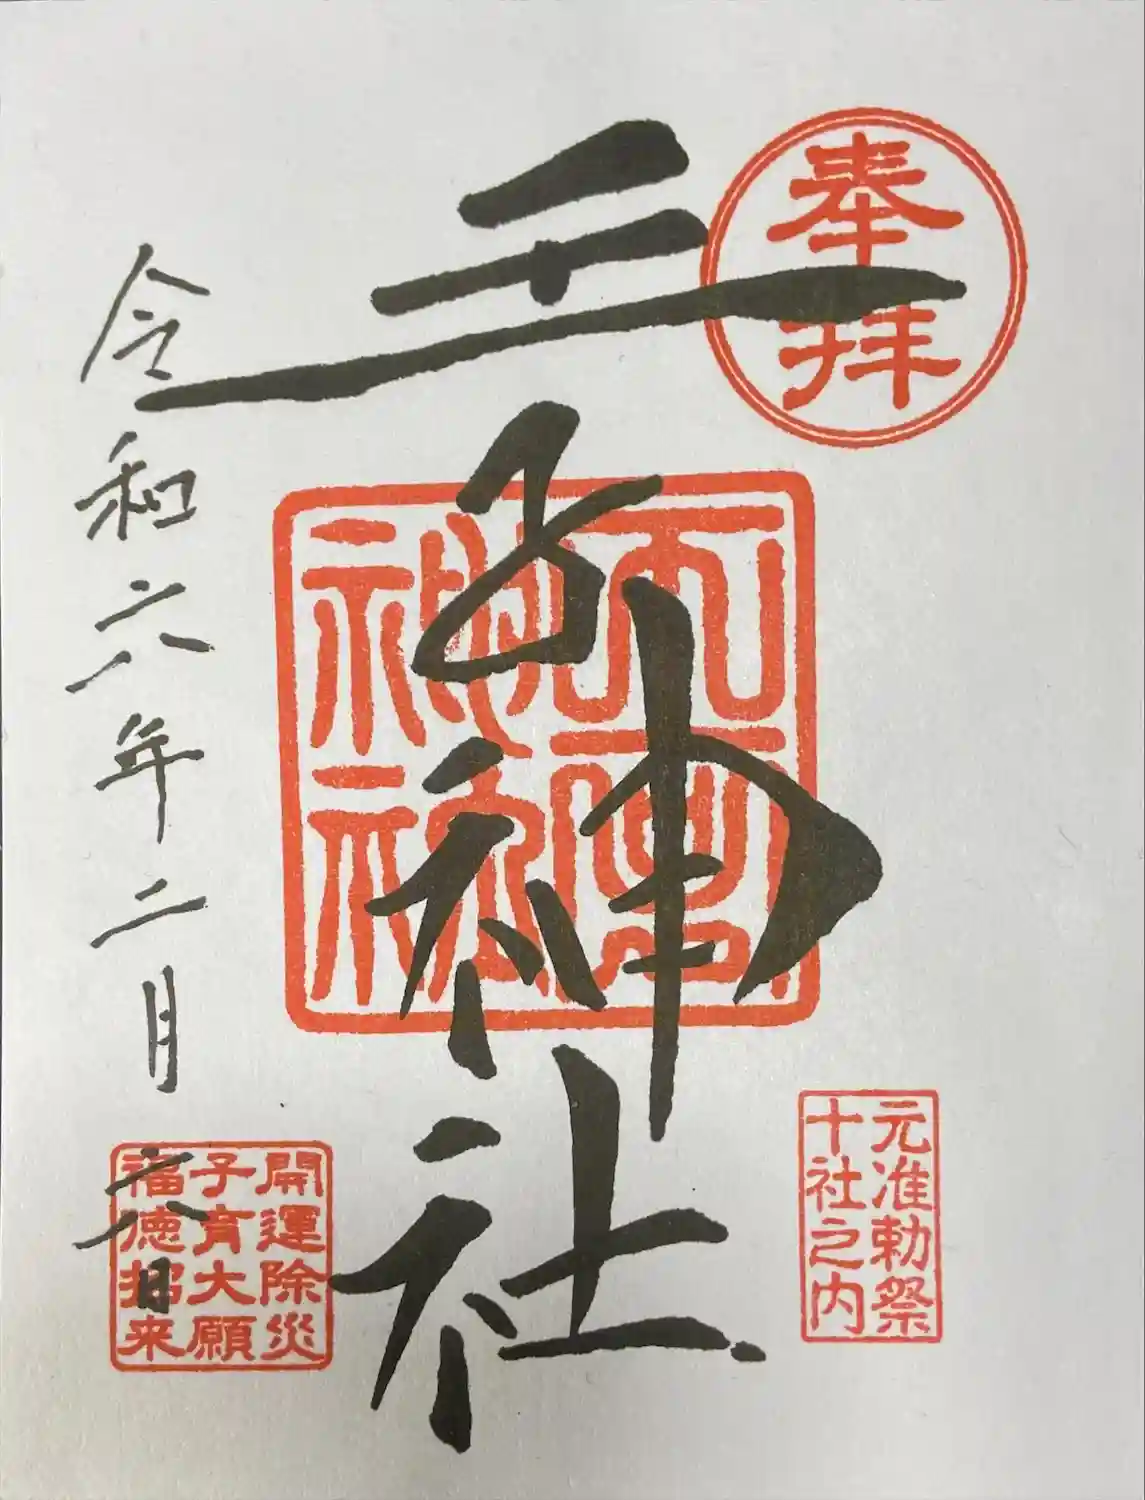 奉拝
元准勅祭
十社之内
王子神社
開運除災
子育大願
福徳招来
令和六年二月六日